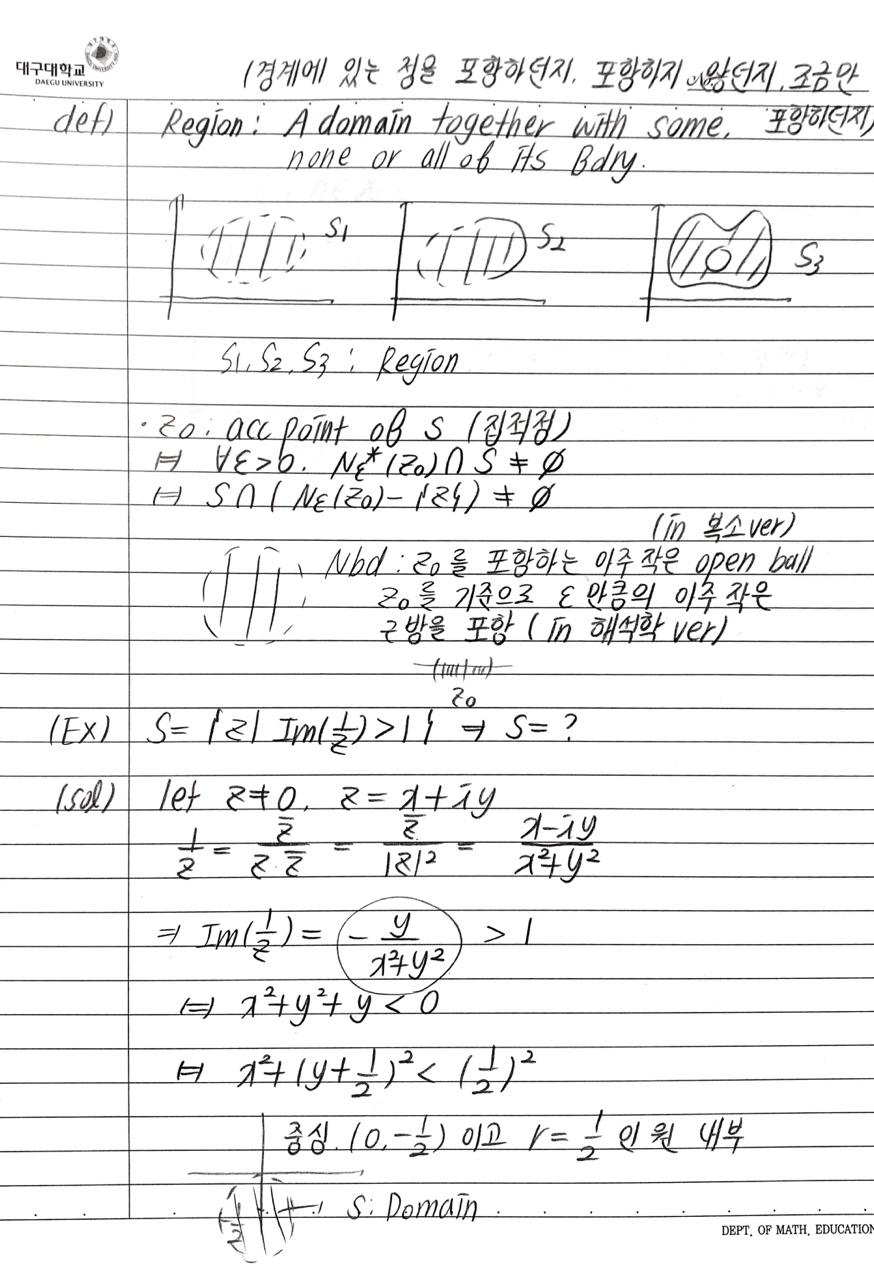 대구대학교
DAEGU UNIVERSITY
(경계에 있는 점을 포함하던지, 포함하지 않던지, 조금만
포함하던지)
def) Region : A domain together with some,
none or all of its Bdry.
S1
S2
S3
S1, S2, S3 : Region
· z0 : acc point of S (집적점)
⇔ ∀ε>0, Nε*(z0) ∩ S ≠ ∅
⇔ S ∩ ( Nε(z0) - {z} ) ≠ ∅
(in 복소 ver)
Nbd : z0를 포함하는 아주 작은 open ball
z0를 기준으로 ε만큼의 아주 작은
근방을 포함 ( in 해석학 ver)
z0
(Ex) S = {z | Im(1/z) > 1 } ⇒ S = ?
(sol) let z ≠ 0, z = x + iy
1/z = z̄/(z·z̄) = z̄/|z|² = (x-iy)/(x²+y²)
⇒ Im(1/z) = - y/(x²+y²) > 1
⇔ x²+y²+y < 0
⇔ x²+(y+1/2)² < (1/2)²
중심 (0, -1/2) 이고 r = 1/2 인 원 내부
-1/2
S : Domain
DEPT. OF MATH. EDUCATION